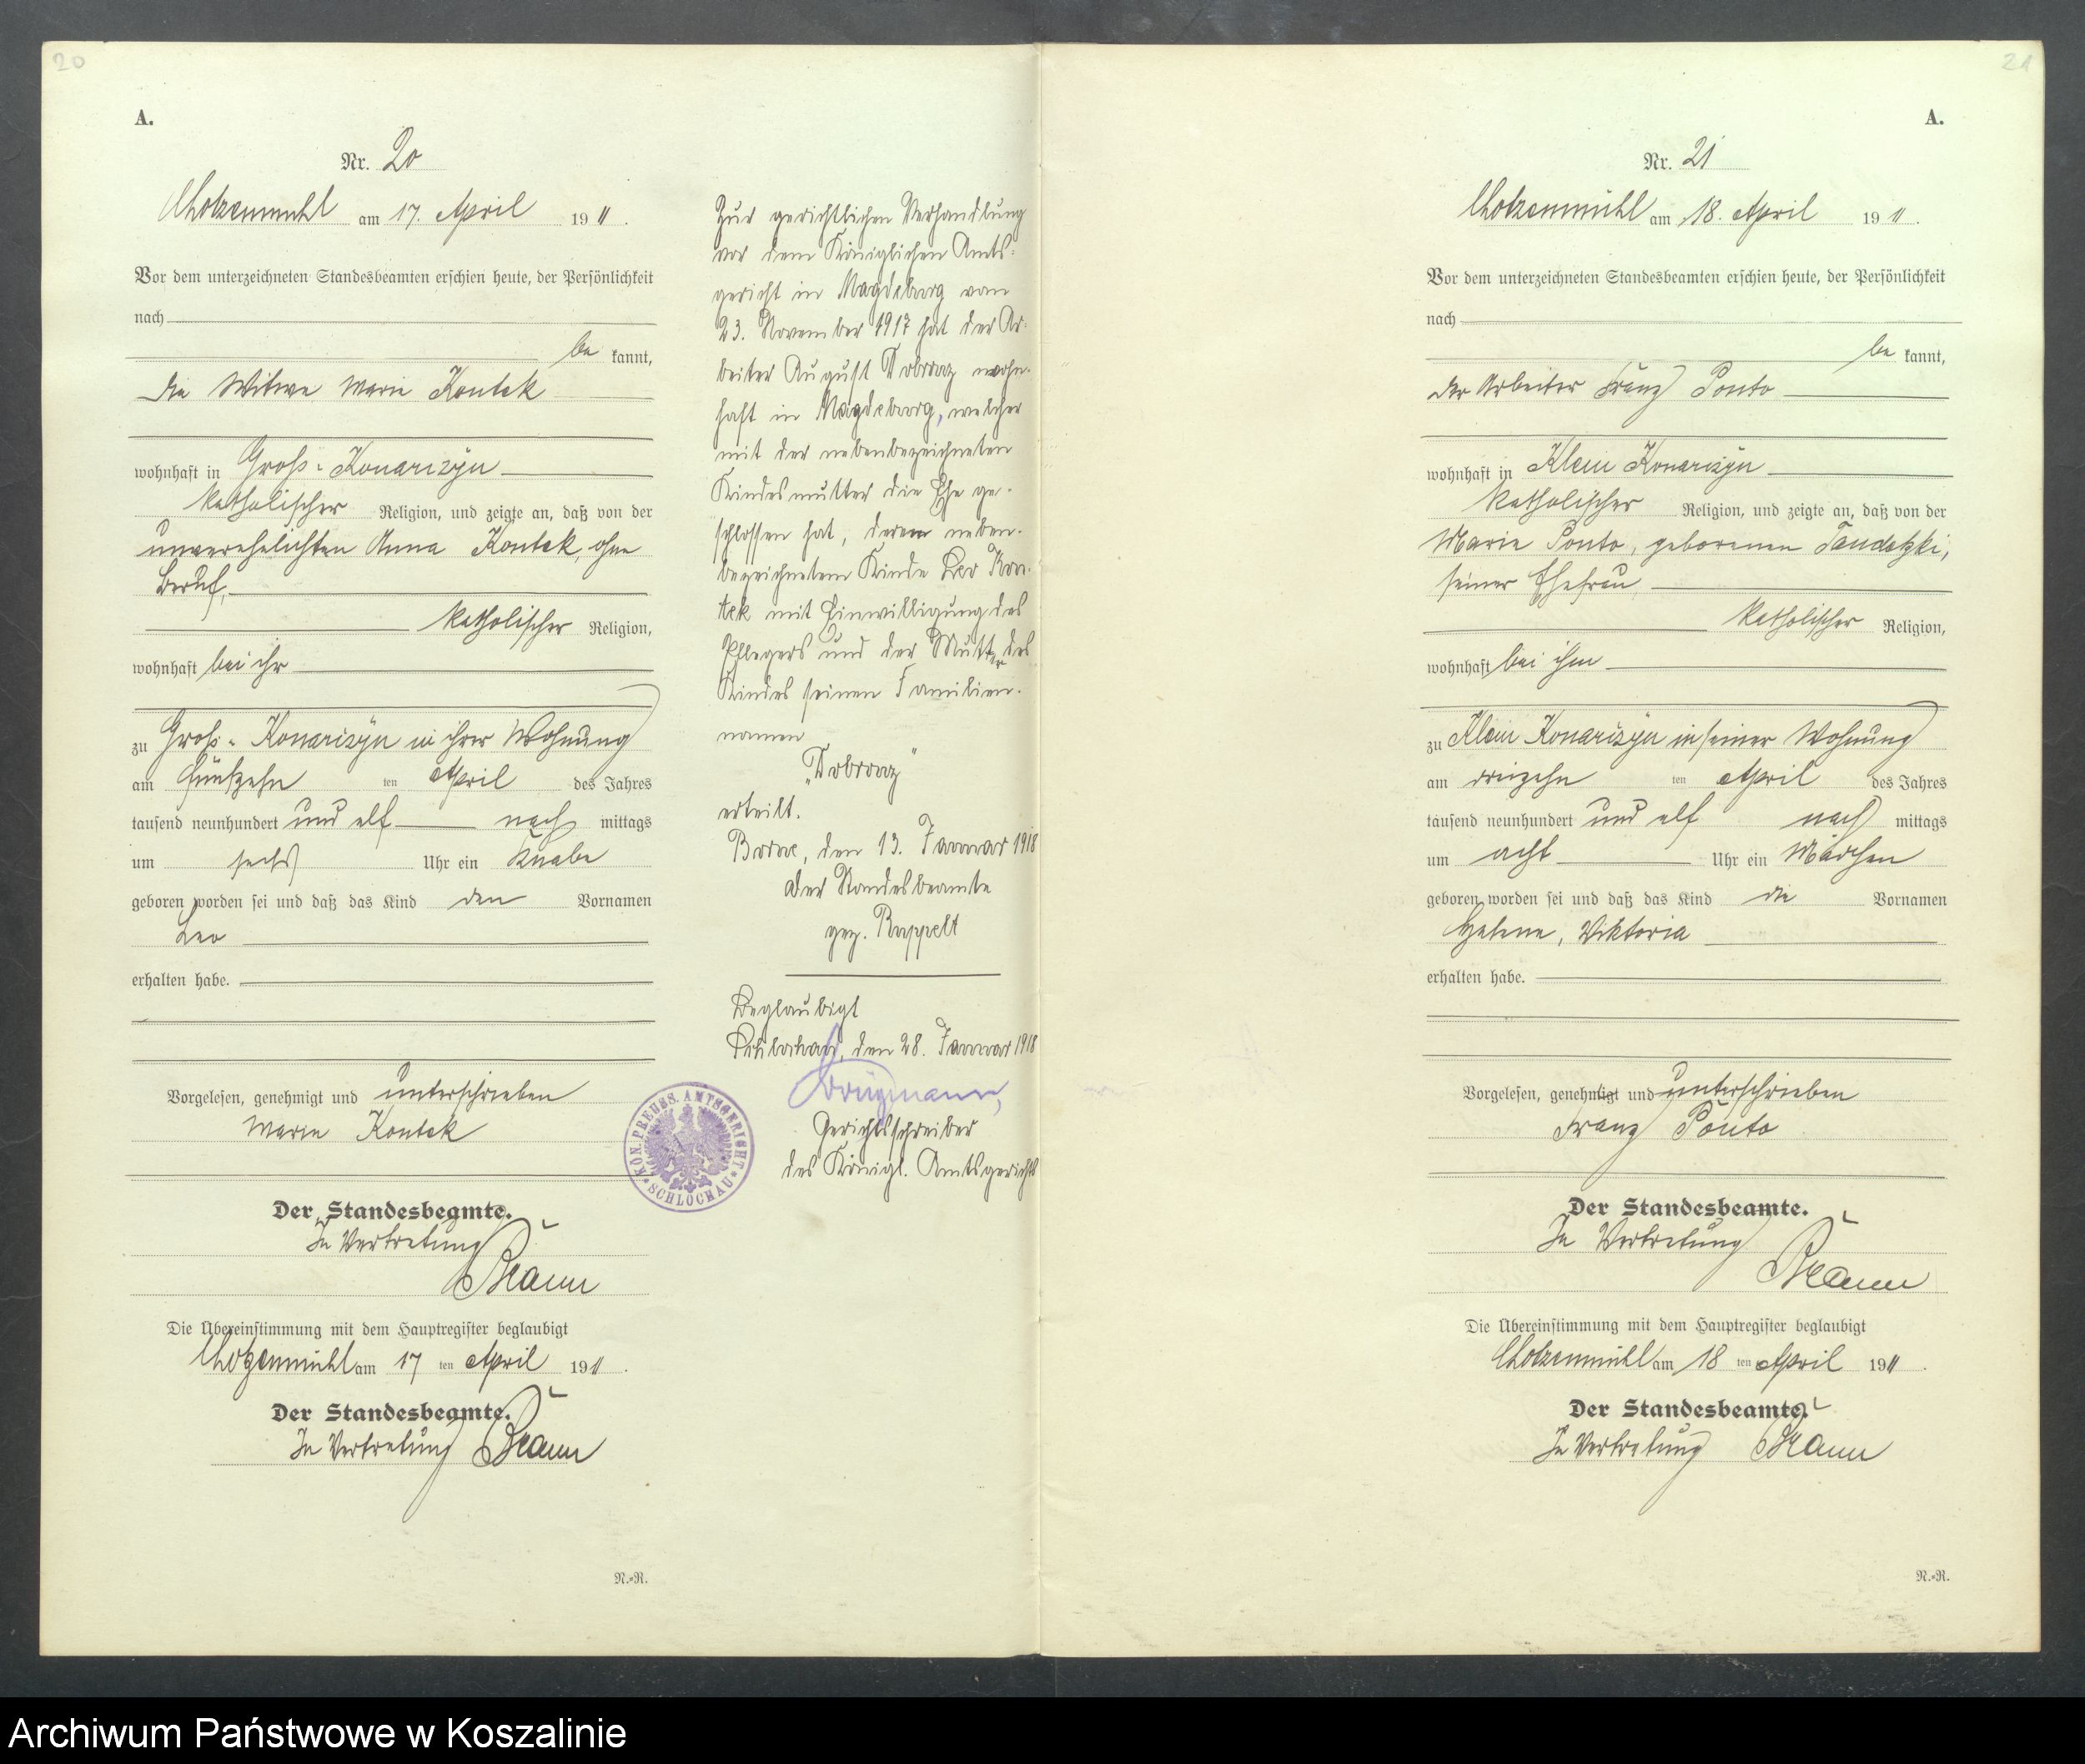 20
A.
Nr. 20
Chotzenmühl am 17. April 1911.
Vor dem unterzeichneten Standesbeamten erschien heute, der Persönlichkeit
nach
be kannt,
die Witwe Marie Kontek
wohnhaft in Groß-Konarczyn
katholischer Religion, und zeigte an, daß von der
unverehelichten Anna Kontek, ohne
Beruf,
katholischer Religion,
wohnhaft bei ihr
zu Groß-Konarczyn in ihrer Wohnung
am fünfzehn ten April des Jahres
tausend neunhundert und elf nach mittags
um sechs Uhr ein Knabe
geboren worden sei und daß das Kind den Vornamen
Leo
erhalten habe.
Vorgelesen, genehmigt und unterschrieben
Marie Kontek
Der Standesbeamte.
In Vertretung
Die Übereinstimmung mit dem Hauptregister beglaubigt
Chotzenmühl am 17 ten April 1911.
Der Standesbeamte.
In Vertretung
N.-R.
Zur gerichtlichen Verhandlung
vor dem Königlichen Amts-
gericht in Magdeburg vom
23. November 1917 hat der Ar-
beiter August wohn-
haft in Magdeburg, welcher
mit der nebenbezeichneten
Kindesmutter die Ehe ge-
schlossen hat, deren neben-
bezeichnetem Kinde Leo Kon-
tek mit Einwilligung des
Pflegers und der Mutter des
Kindes seinen Familien-
namen
erteilt.
den 13. Januar 1918
Der Standesbeamte
gez. Ruppelt
Beglaubigt
Schlochau, den 28. Januar 1918
Gerichtsschreiber
des Königl. Amtsgerichts
KÖN. PREUSS. AMTSGERICHT
SCHLOCHAU
21
A.
Nr. 21
Chotzenmühl am 18. April 1911.
Vor dem unterzeichneten Standesbeamten erschien heute, der Persönlichkeit
nach
be kannt,
der Arbeiter Franz Ponto
wohnhaft in Klein Konarczyn
katholischer Religion, und zeigte an, daß von der
Marie Ponto, geborenen Tandetzki,
seiner Ehefrau,
katholischer Religion,
wohnhaft bei ihm
zu Klein Konarczyn in seiner Wohnung
am dreizehn ten April des Jahres
tausend neunhundert und elf nach mittags
um acht Uhr ein Mädchen
geboren worden sei und daß das Kind die Vornamen
Helene, Viktoria
erhalten habe.
Vorgelesen, genehmigt und unterschrieben
Franz Ponto
Der Standesbeamte.
In Vertretung
Die Übereinstimmung mit dem Hauptregister beglaubigt
Chotzenmühl am 18 ten April 1911.
Der Standesbeamte.
In Vertretung
N.-R.
Archiwum Państwowe w Koszalinie